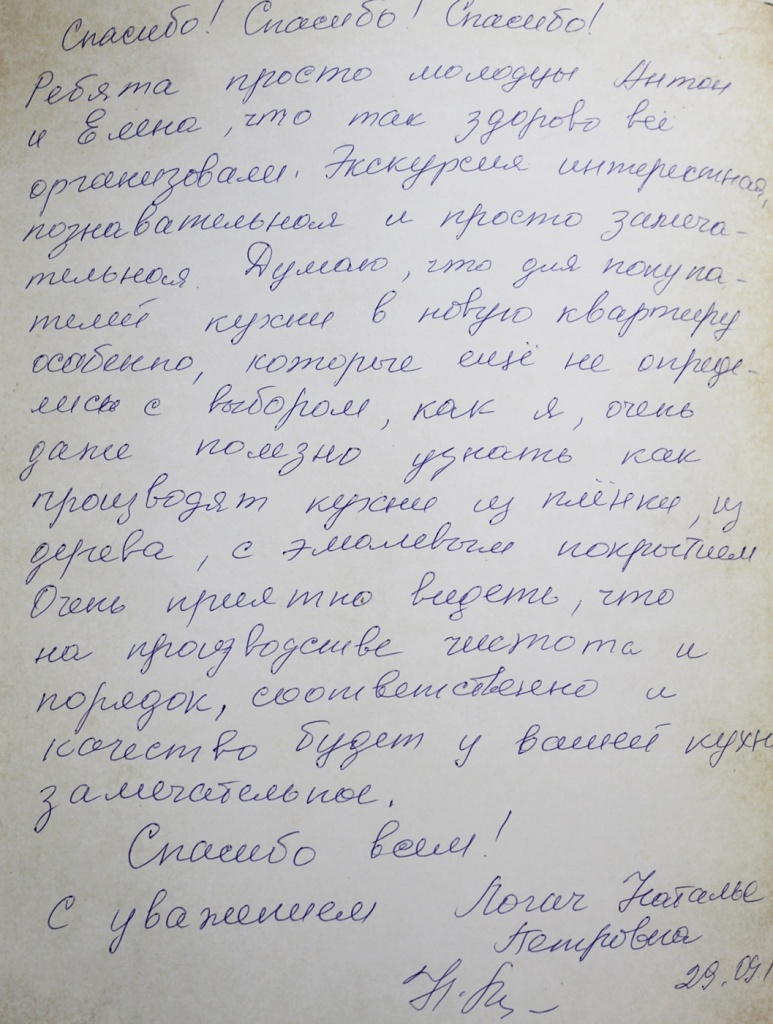 Спасибо! Спасибо! Спасибо!
Ребята просто молодцы Антон
и Елена, что так здорово всё
организовали. Экскурсия интересная,
познавательная и просто замеча-
тельная. Думаю, что для покупа-
телей кухни в новую квартиру
особенно, которые ещё не опреде-
лись с выбором, как я, очень
даже полезно узнать как
производят кухни из плёнки, из
дерева, с эмалевым покрытием
Очень приятно видеть, что
на производстве чистота и
порядок, соответственно и
качество будет у вашей кухн
замечательное.
Спасибо всем!
С уважением Логач Наталье
Петровна
29.09.